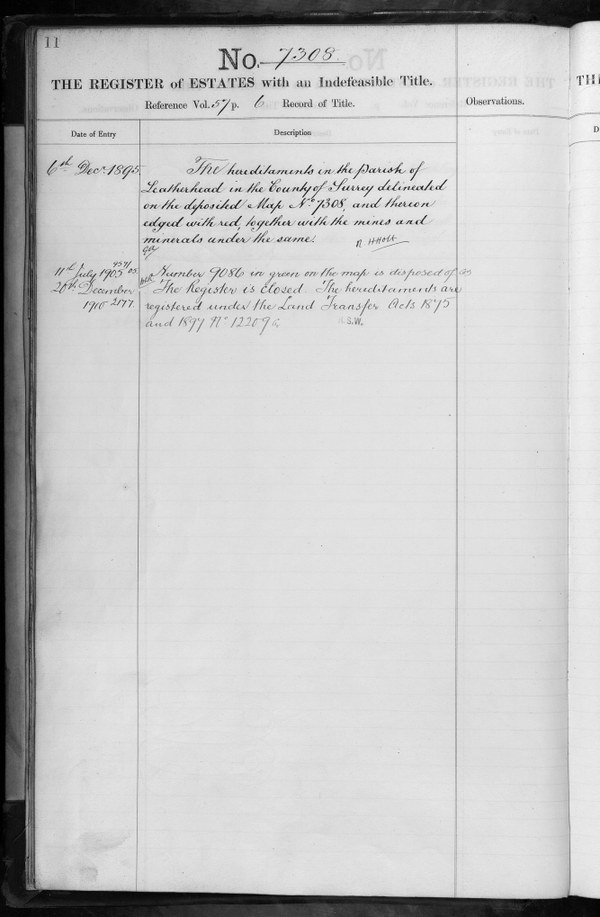 11
No. 7308.
THE REGISTER of ESTATES with an Indefeasible Title.
Reference Vol. 57 p. 6 Record of Title.
Observations.
Date of Entry
Description
6th Decr 1895.
The hereditaments in the Parish of
Leatherhead in the County of Surrey delineated
on the deposited Map No. 7308, and thereon
edged with red, together with the mines and
minerals under the same.
11th July 1905
Number 9086 in green on the map is disposed of
20th December
1910 2177.
The Register is Closed. The hereditaments are
registered under the Land Transfer Acts 1875
and 1897 No.
S.W.
TH
D